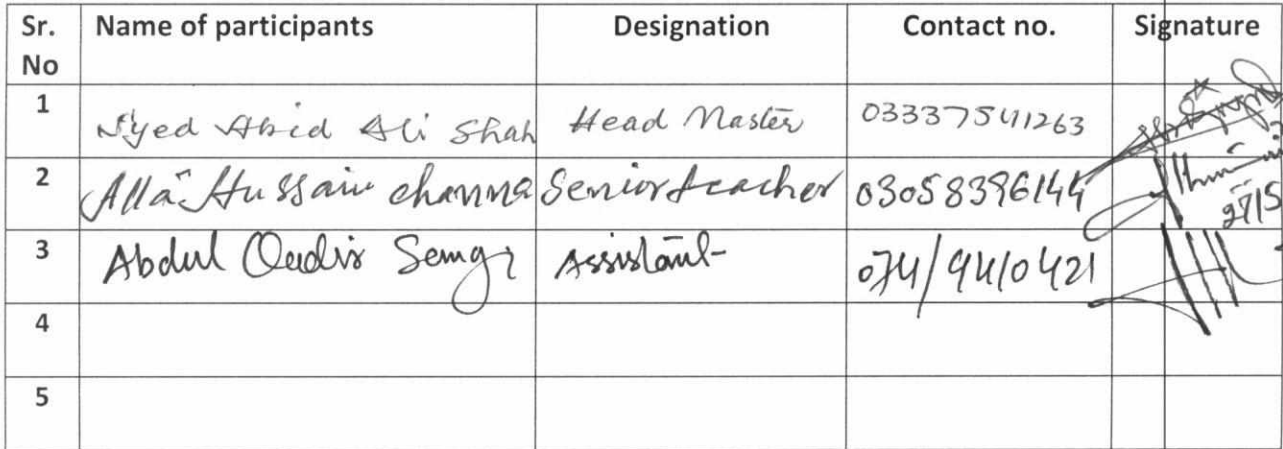 Sr. No Name of participants Designation Contact no. Signature
1 Syed Abid Ali Shah Head Master 03337541263
2 Alla Hussain channa Senior teacher 03058396144
3 Abdul Assistant 074/9410421
4
5